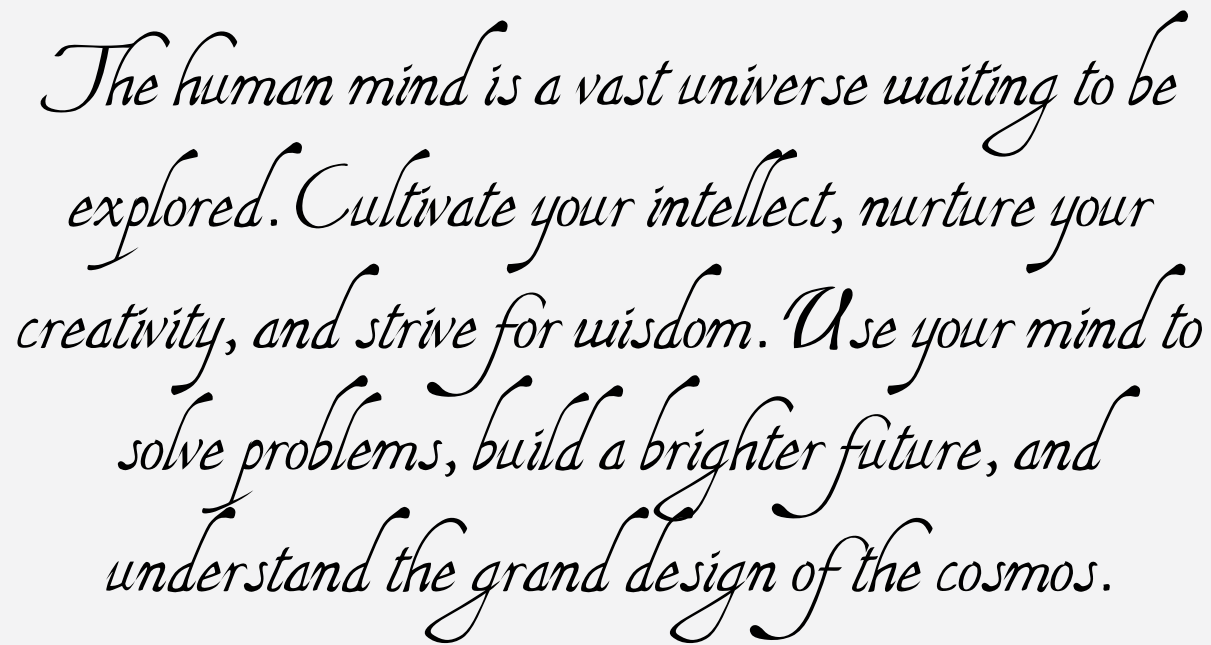 The human mind is a vast universe waiting to be
explored. Cultivate your intellect, nurture your
creativity, and strive for wisdom. Use your mind to
solve problems, build a brighter future, and
understand the grand design of the cosmos.